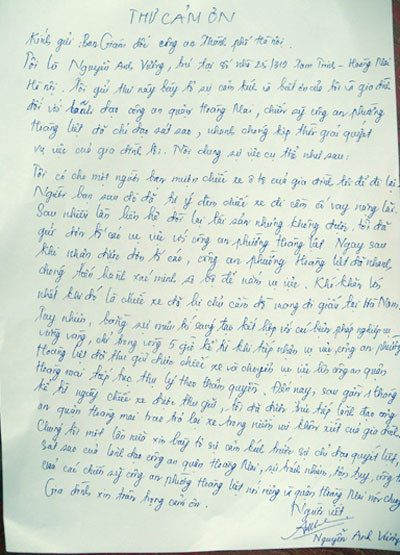 THƯ CẢM ƠN
Kính gửi: Ban Giám đốc công an Thành phố Hà Nội.
Tôi là Nguyễn Anh Vường, trú tại số nhà 25 Kim Trinh - Hoàng Mai
Hà Nội. Tôi gửi thư này bày tỏ sự cảm kích và biết ơn của tôi và gia đình
đối với lãnh đạo công an quận Hoàng Mai, chiến sỹ công an phường
Hoàng Liệt đã chỉ đạo sát sao, nhanh chóng kịp thời giải quyết
vụ việc của gia đình tôi. Nội dung sự việc cụ thể như sau:
Tôi có cho một người bạn mượn chiếc xe ô tô của gia đình tôi để đi lại.
Người bạn sau đó đã tự ý đem chiếc xe đi cầm cố vay nặng lãi.
Sau nhiều lần liên hệ đòi lại tài sản nhưng không được, tôi đã
gửi đơn tố cáo vụ việc với công an phường Hoàng Liệt. Ngay sau
khi nhận được đơn tố cáo, công an phường Hoàng Liệt đã nhanh
chóng tiến hành xác minh sơ bộ để nắm vụ việc. Khó khăn lớn
nhất khi đó là chiếc xe đã bị chủ cầm đồ mang đi giấu tại Hà Nam.
Tuy nhiên, bằng sự mưu trí sáng tạo kết hợp với các biện pháp nghiệp vụ
vững vàng, chỉ trong vòng 5 giờ kể từ khi tiếp nhận vụ việc, công an phường
Hoàng Liệt đã thu giữ chiếc xe và chuyển vụ việc lên công an quận
Hoàng Mai tiếp tục thụ lý theo thẩm quyền. Đến nay, sau gần tháng
kể từ ngày chiếc xe được thu giữ, tôi đã được trực tiếp lãnh đạo công
an quận Hoàng Mai trao trả lại xe trong niềm vui khôn xiết của gia đình.
Chúng tôi một lần nữa xin bày tỏ sự cảm kích trước sự chỉ đạo quyết liệt,
sát sao của lãnh đạo công an quận Hoàng Mai, sự trách nhiệm, tận tuỵ, công
của các chiến sỹ công an phường Hoàng Liệt nói riêng và quận Hoàng Mai nói chung.
Gia đình xin trân trọng cảm ơn.
Người viết
Nguyễn Anh Vường